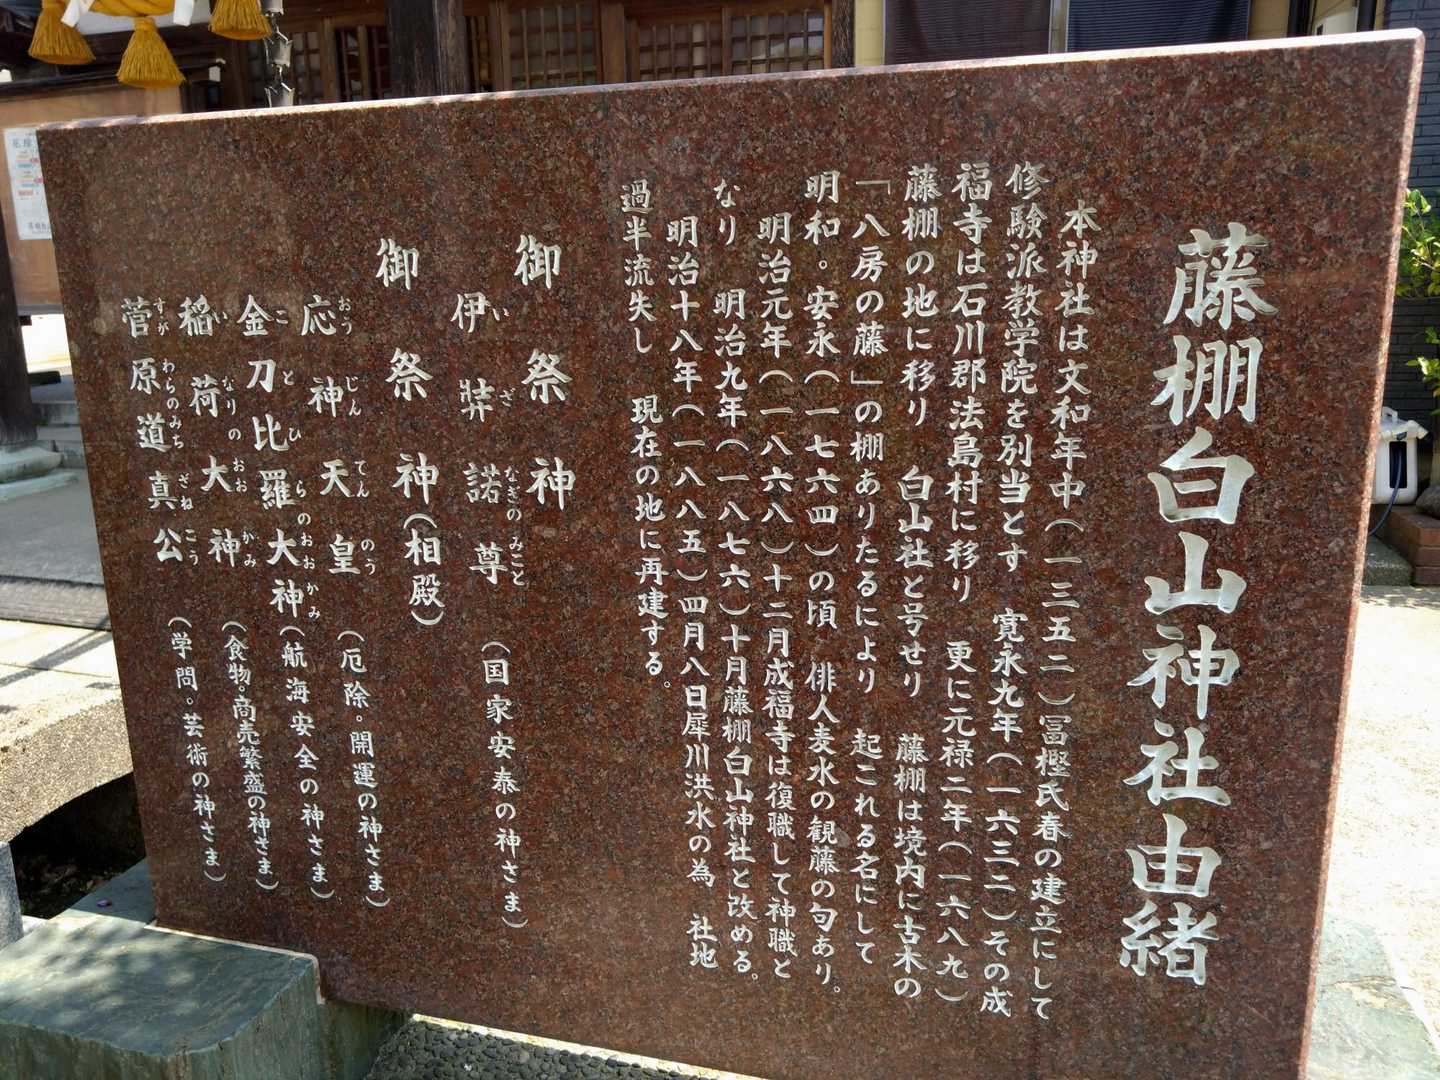 藤棚白山神社由緒
本神社は文和年中(一三五二)冨樫氏春の建立にして
修験派教学院を別当とす 寛永九年(一六三二)その成
福寺は石川郡法島村に移り 更に元禄二年(一六八九)
藤棚の地に移り 白山社と号せり 藤棚は境内に古木の
「八房の藤」の棚ありたるにより 起これる名にして
明和。安永(一七六四)の頃 俳人麦水の観藤の句あり。
明治元年(一八六八)十二月成福寺は復職して神職と
なり 明治九年(一八七六)十月藤棚白山神社と改める。
明治十八年(一八八五)四月八日犀川洪水の為 社地
過半流失し 現在の地に再建する。
御祭神
伊弉諾尊 (国家安泰の神さま)
いざなぎのみこと
御祭神(相殿)
応神天皇 (厄除。開運の神さま)
おうじんてんのう
金刀比羅大神(航海安全の神さま)
ことひらのおおかみ
稲荷大神 (食物。商売繁盛の神さま)
いなりのおおかみ
菅原道真公 (学問。芸術の神さま)
すがわらのみちざねこう